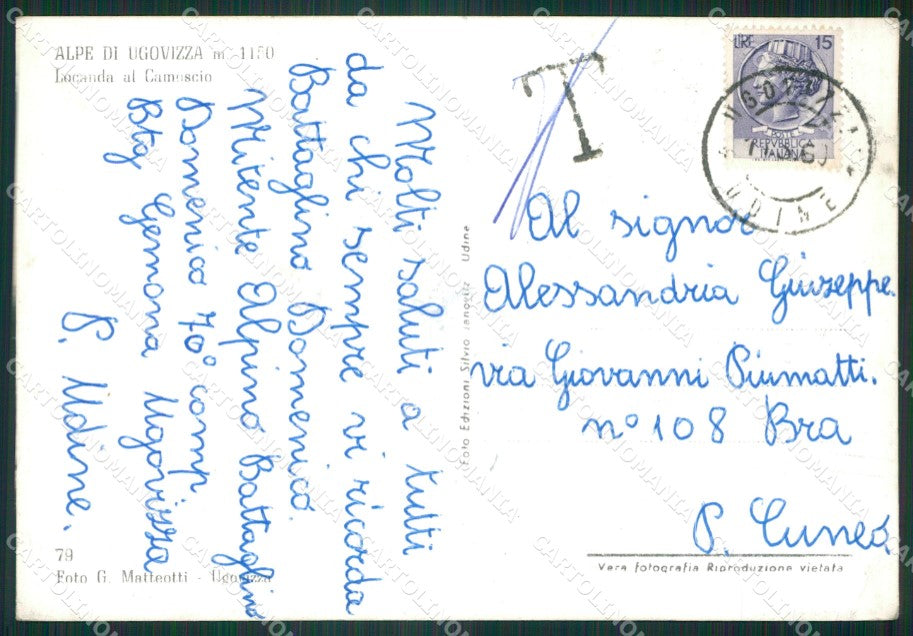 ALPE DI UGOVIZZA m. 1150
Locanda al Camoscio
Molti saluti a tutti
da chi sempre vi ricorda
Battaglino Domenico.
Mitente Alpino Battaglino
Domenico 70° comp.
Btg. Gemona Ugovizza
P. Udine.
79
Foto G. Matteotti - Ugovizza
Foto Edizioni Silvio Janovitz Udine
T
LIRE 15
POSTE
REPVBBLICA
ITALIANA
UDINE
Al signor
Alessandria Giuseppe.
via Giovanni Piumatti.
n° 108 Bra
P. Cuneo
Vera fotografia Riproduzione vietata
CARTOLINOMANIA